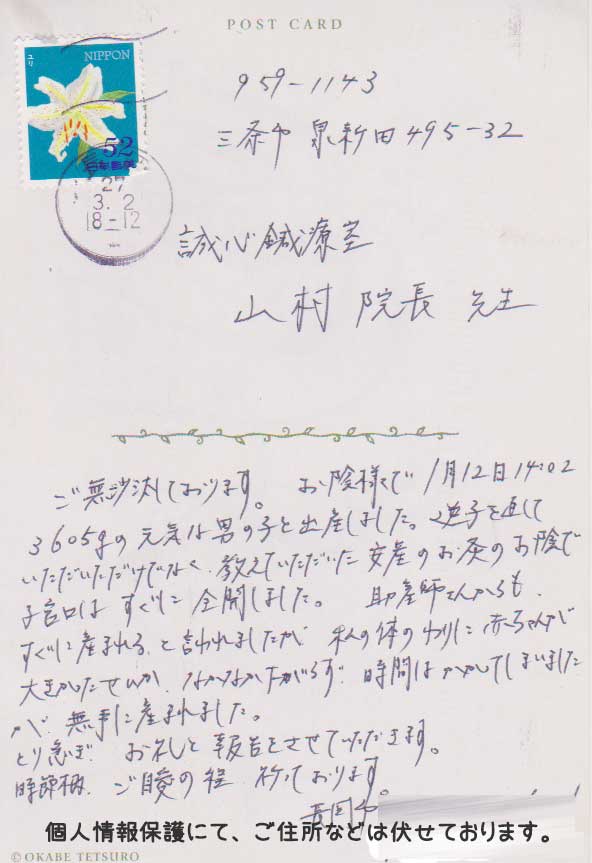 POST CARD
ユリ
NIPPON
52
日本郵便
27
3. 2
18-12
959-1143
三条市 泉新田 495-32
誠心鍼療室
山村 院長 先生
ご無沙汰しております。 お陰様で 1月12日14:02
3605gの元気な男の子を出産しました。逆子を直して
いただいただけでなく、教えていただいた安産のお灸のお陰で
子宮口は すぐに 全開しました。 助産師さんからも、
すぐに産まれる、と言われましたが 私の体のわりに赤ちゃんが
大きかったせいか、なかなか下がらず、時間はかかってしまいました
が、無事に産まれました。
とり急ぎ お礼と報告をさせていただきます。
時節柄、ご自愛の程、祈っております。
長岡市
個人情報保護にて、ご住所などは伏せております。
©OKABE TETSURO